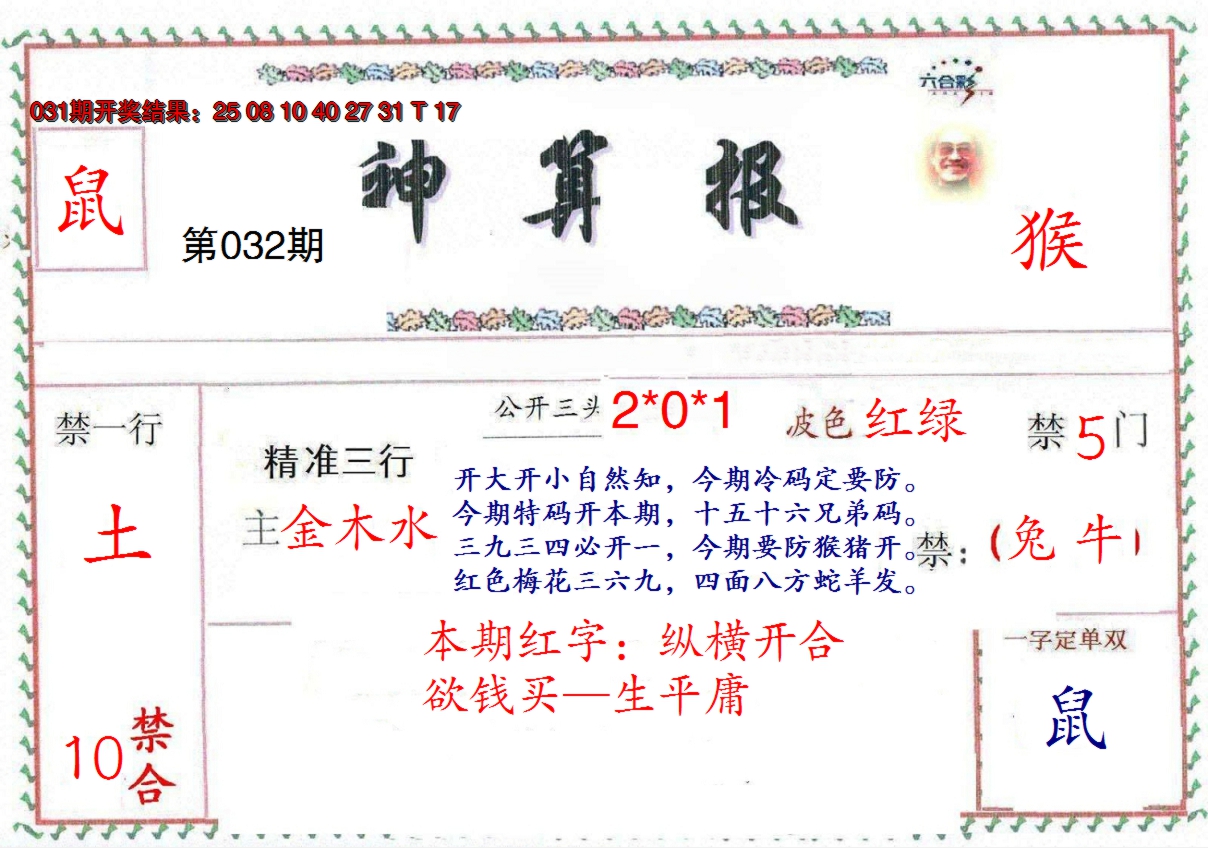 六合彩
031期开奖结果：25 08 10 40 27 31 T 17
神算报
鼠
第032期
猴
禁一行
土
10禁合
公开三头 2*0*1
波色 红绿
禁5门
精准三行
主金木水
开大开小自然知，今期冷码定要防。
今期特码开本期，十五十六兄弟码。
三九三四必开一，今期要防猴猪开。
红色梅花三六九，四面八方蛇羊发。
禁：（兔 牛）
本期红字：纵横开合
欲钱买—生平庸
一字定单双
鼠